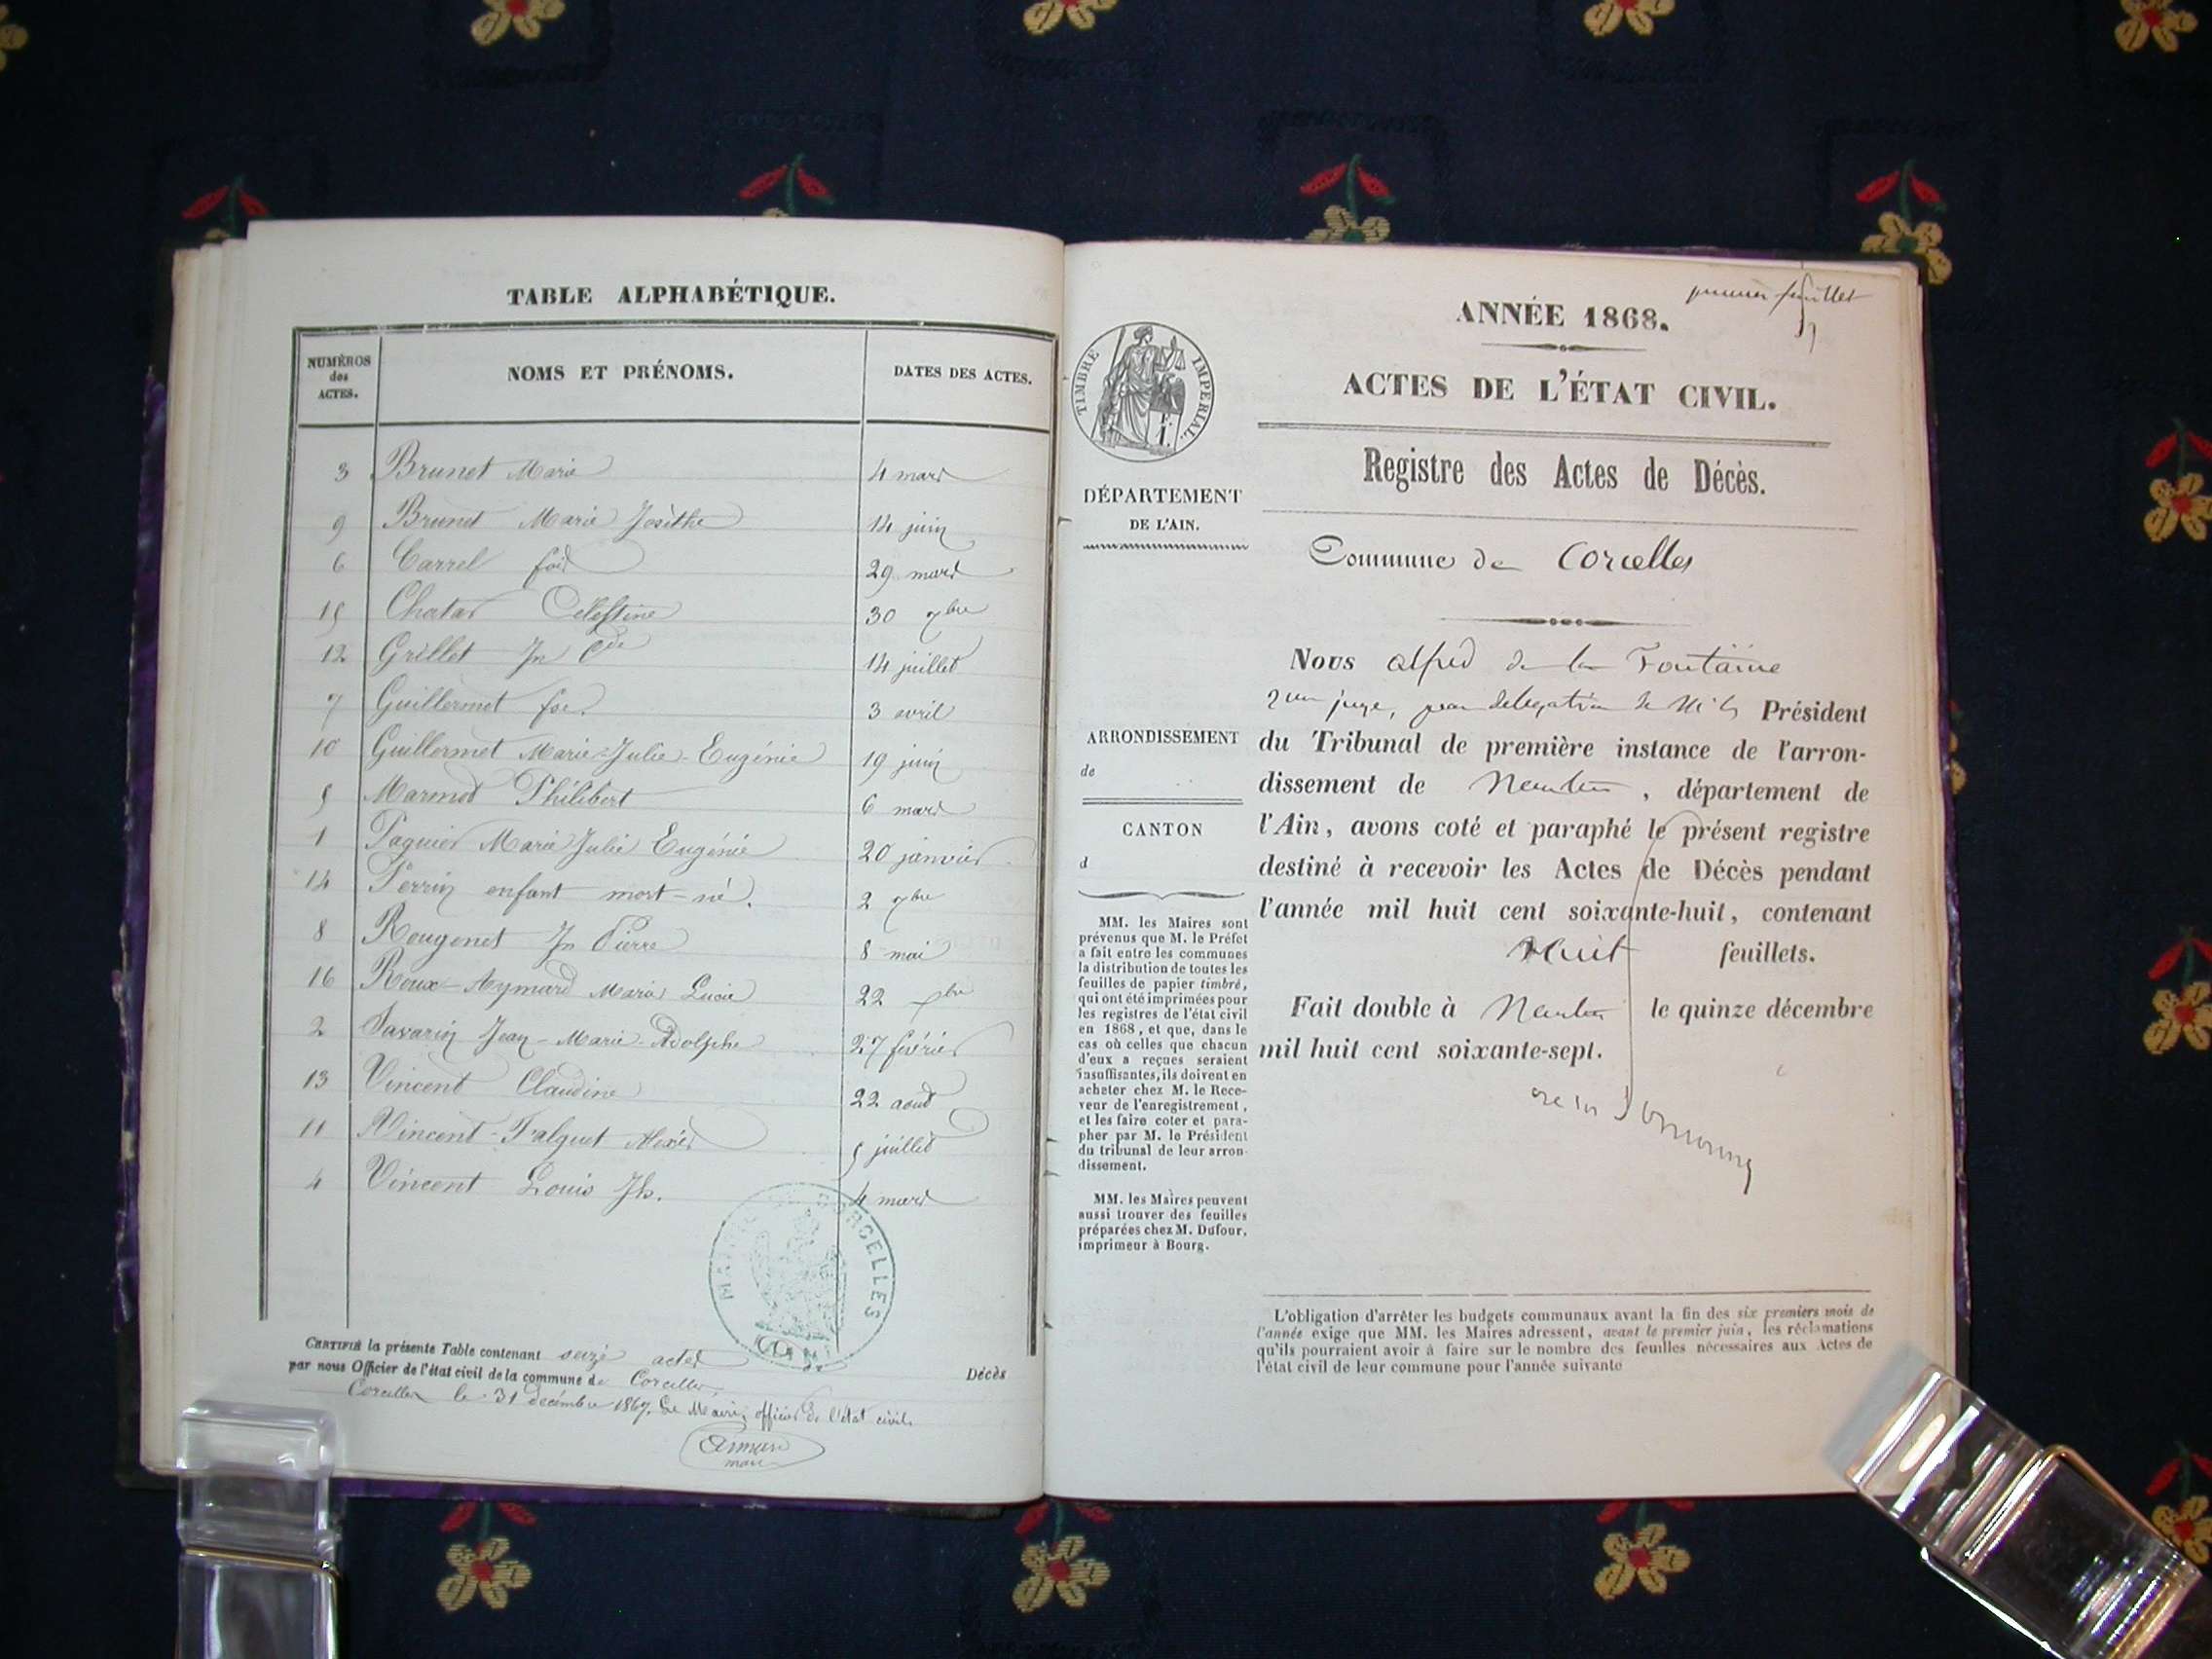 TABLE ALPHABÉTIQUE.
NUMÉROS
des
ACTES.
NOMS ET PRÉNOMS.
DATES DES ACTES.
3 Brunet Marie 4 mars
9 Brunet Marie Josèthe 14 juin
6 Carrel 29 mars
15 Chatar Célestine 30 7bre
12 Grillet Jn Cde 14 juillet
7 Guillermet 3 avril
10 Guillermet Marie-Julie-Eugénie 19 juin
5 Marmod Philibert 6 mars
1 Paquier Marie Julie Eugénie 20 janvier
14 Perrin enfant mort-né. 2 7bre
8 Rougenet Jn Pierre 8 mai
16 Roux-Aymard Marie Lucie 22
2 Savarin Jean-Marie-Adolphe 27 février
13 Vincent Claudine 22 aout
11 Vincent-Falquet Alexis 5 juillet
4 Vincent Louis Jh. 4 mars
MAIRIE DE CORCELLES
(AIN)
CERTIFIÉ la présente Table contenant seize actes Décès
par nous Officier de l'état civil de la commune de Corcelles
Corcelles le 31 décembre 1867. Le Maire, officier de l'état civil.
maire
premier feuillet
ANNÉE 1868.
ACTES DE L'ÉTAT CIVIL.
TIMBRE IMPÉRIAL.
Registre des Actes de Décès.
DÉPARTEMENT
DE L'AIN.
Commune de Corcelles
Nous alfred de la Fontaine
juge, par délégation de Mr le Président
ARRONDISSEMENT
de
du Tribunal de première instance de l'arron-
dissement de Nantua, département de
CANTON
d
l'Ain, avons coté et paraphé le présent registre
destiné à recevoir les Actes de Décès pendant
l'année mil huit cent soixante-huit, contenant
huit feuillets.
Fait double à Nantua le quinze décembre
mil huit cent soixante-sept.
MM. les Maires sont
prévenus que M. le Préfet
a fait entre les communes
la distribution de toutes les
feuilles de papier timbré,
qui ont été imprimées pour
les registres de l'état civil
en 1868, et que, dans le
cas où celles que chacun
d'eux a reçues seraient
insuffisantes, ils doivent en
acheter chez M. le Rece-
veur de l'enregistrement,
et les faire coter et para-
pher par M. le Président
du tribunal de leur arron-
dissement.
MM. les Maires peuvent
aussi trouver des feuilles
préparées chez M. Dufour,
imprimeur à Bourg.
L'obligation d'arrêter les budgets communaux avant la fin des six premiers mois de
l'année exige que MM. les Maires adressent, avant le premier juin, les réclamations
qu'ils pourraient avoir à faire sur le nombre des feuilles nécessaires aux Actes de
l'état civil de leur commune pour l'année suivante